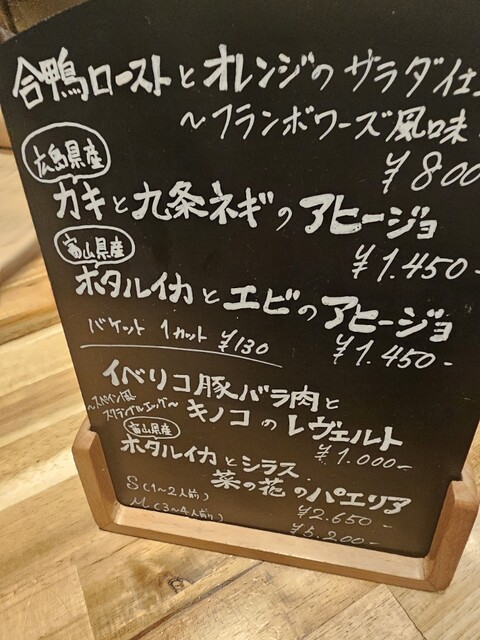 合鴨ローストとオレンジのサラダ仕
～フランボワーズ風味
¥800
広島県産
カキと九条ネギのアヒージョ
¥1.450-
富山県産
ホタルイカとエビのアヒージョ
バケット 1カット ¥130
¥1.450-
イベリコ豚バラ肉と
～スペイン風
スクランブルエッグ～
キノコのレヴェルト
¥1.000-
富山県産
ホタルイカとシラス
菜の花のパエリア
S(1~2人前)
¥2.650-
M(3~4人前)
¥5.200-